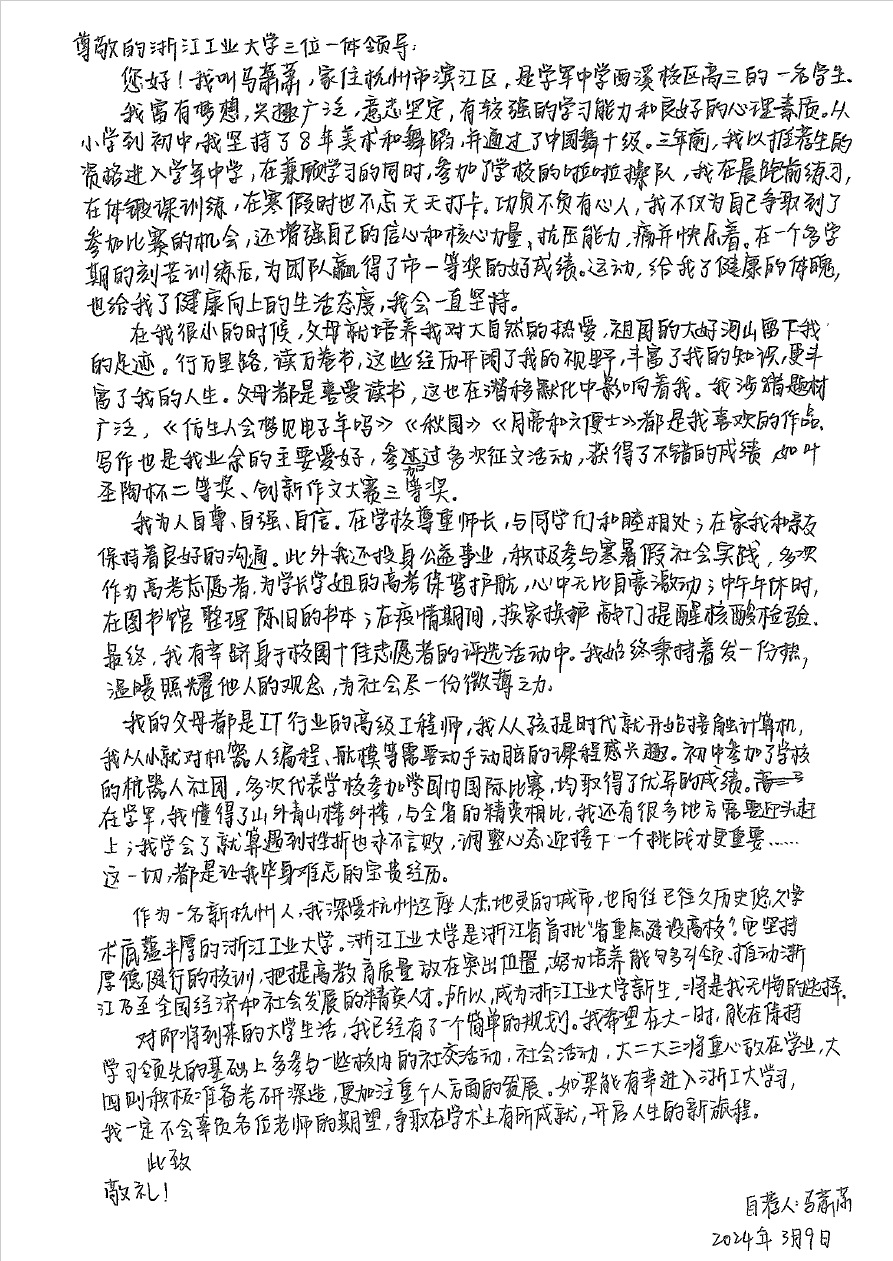 尊敬的浙江工业大学三位一体领导:
您好！我叫马萧萧，家住杭州市滨江区，是学军中学西溪校区高三的一名学生.
我富有梦想，兴趣广泛，意志坚定，有较强的学习能力和良好的心理素质。从
小学到初中，我坚持了8年美术和舞蹈，并通过了中国舞十级。三年前，我以推荐生的
资格进入学军中学，在兼顾学习的同时，参加了学校的啦啦操队，我在晨跑前练习，
在体锻课训练，在寒假时也不忘天天打卡。功负不负有心人，我不仅为自己争取到了
参加比赛的机会，还增强自己的信心和核心力量、抗压能力，痛并快乐着。在一个多学
期的刻苦训练后，为团队赢得了市一等奖的好成绩。运动，给我了健康的体魄，
也给我了健康向上的生活态度，我会一直坚持。
在我很小的时候，父母就培养我对大自然的热爱，祖国的大好河山留下我
的足迹。行万里路，读万卷书，这些经历开阔了我的视野，丰富了我的知识，更丰
富了我的人生。父母都是喜爱读书，这也在潜移默化中影响着我。我涉猎题材
广泛，《仿生人会梦见电子羊吗》《秋园》《月亮和六便士》都是我喜欢的作品.
写作也是我业余的主要爱好，参加过多次征文活动，获得了不错的成绩，如叶
圣陶杯二等奖、创新作文大赛三等奖.
我为人自尊、自强、自信.在学校尊重师长，与同学们和睦相处；在家我和亲友
保持着良好的沟通。此外我还投身公益事业，积极参与寒暑假社会实践，多次
作为高考志愿者，为学长学姐的高考保驾护航，心中无比自豪激动；中午午休时，
在图书馆整理陈旧的书本；在疫情期间，挨家挨户敲门提醒核酸检验.
最终，我有幸跻身于校园十佳志愿者的评选活动中。我始终秉持着发一份热，
温暖照耀他人的观念，为社会尽一份微薄之力.
我的父母都是IT行业的高级工程师，我从孩提时代就开始接触计算机，
我从小就对机器人编程、航模等需要动手动脑的课程感兴趣。初中参加了学校
的机器人社团，多次代表学校参加学国内国际比赛，均取得了优异的成绩。
在学军，我懂得了山外青山楼外楼，与全省的精英相比，我还有很多地方需要迎头赶
上；我学会了就算遇到挫折也永不言败，调整心态迎接下一个挑战才更重要……
这一切，都是让我毕身难忘的宝贵经历.
作为一名新杭州人，我深爱杭州这座人杰地灵的城市，也向往已经久历史悠久学
术底蕴丰厚的浙江工业大学。浙江工业大学是浙江省首批“省重点建设高校”.它坚持
厚德健行的校训，把提高教育质量放在突出位置，努力培养能够多引领、推动浙
江乃至全国经济和社会发展的精英人才。所以，成为浙江工业大学新生，将是我无悔的选择.
对即将到来的大学生活，我已经有了一个简单的规划。我希望在大一时，能在保持
学习领先的基础上多参与一些校内的社交活动，社会活动，大二大三将重心放在学业，大
四则积极准备考研深造，更加注重个人方面的发展。如果能有幸进入浙工大学习，
我一定不会辜负各位老师的期望，争取在学术上有所成就，开启人生的新旅程。
此致
敬礼！
自荐人:马萧萧
2024年3月9日